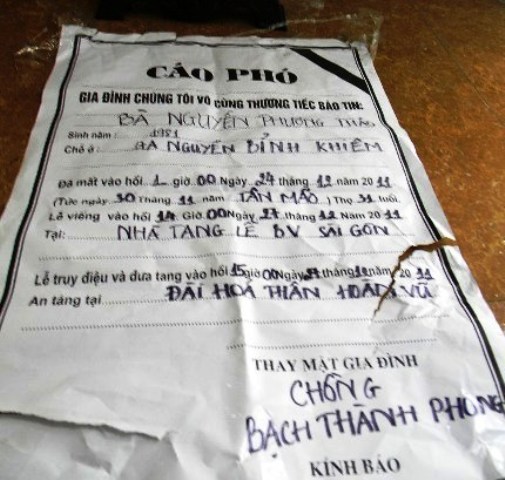 CÁO PHÓ
GIA ĐÌNH CHÚNG TÔI VÔ CÙNG THƯƠNG TIẾC BÁO TIN:
BÀ NGUYỄN PHƯƠNG THẢO
Sinh năm : 1981
Chỗ ở : NGUYỄN BỈNH KHIÊM
Đã mất vào hồi 1 giờ 00 Ngày 24 tháng 12 năm 2011
(Tức ngày 30 Tháng 11 năm TÂN MÃO) Thọ 31 tuổi.
Lễ viếng vào hồi 14 Giờ 00 Ngày 27 tháng 12 Năm 2011
Tại: NHÀ TANG LỄ BV SÀI GÒN
Lễ truy điệu và đưa tang vào hồi 15 giờ 00 Ngày tháng 12 năm 2011
An táng tại ĐÀI HOÁ THÂN HOÀN VŨ
THAY MẶT GIA ĐÌNH
CHỒNG
BẠCH THÀNH PHONG
KÍNH BÁO